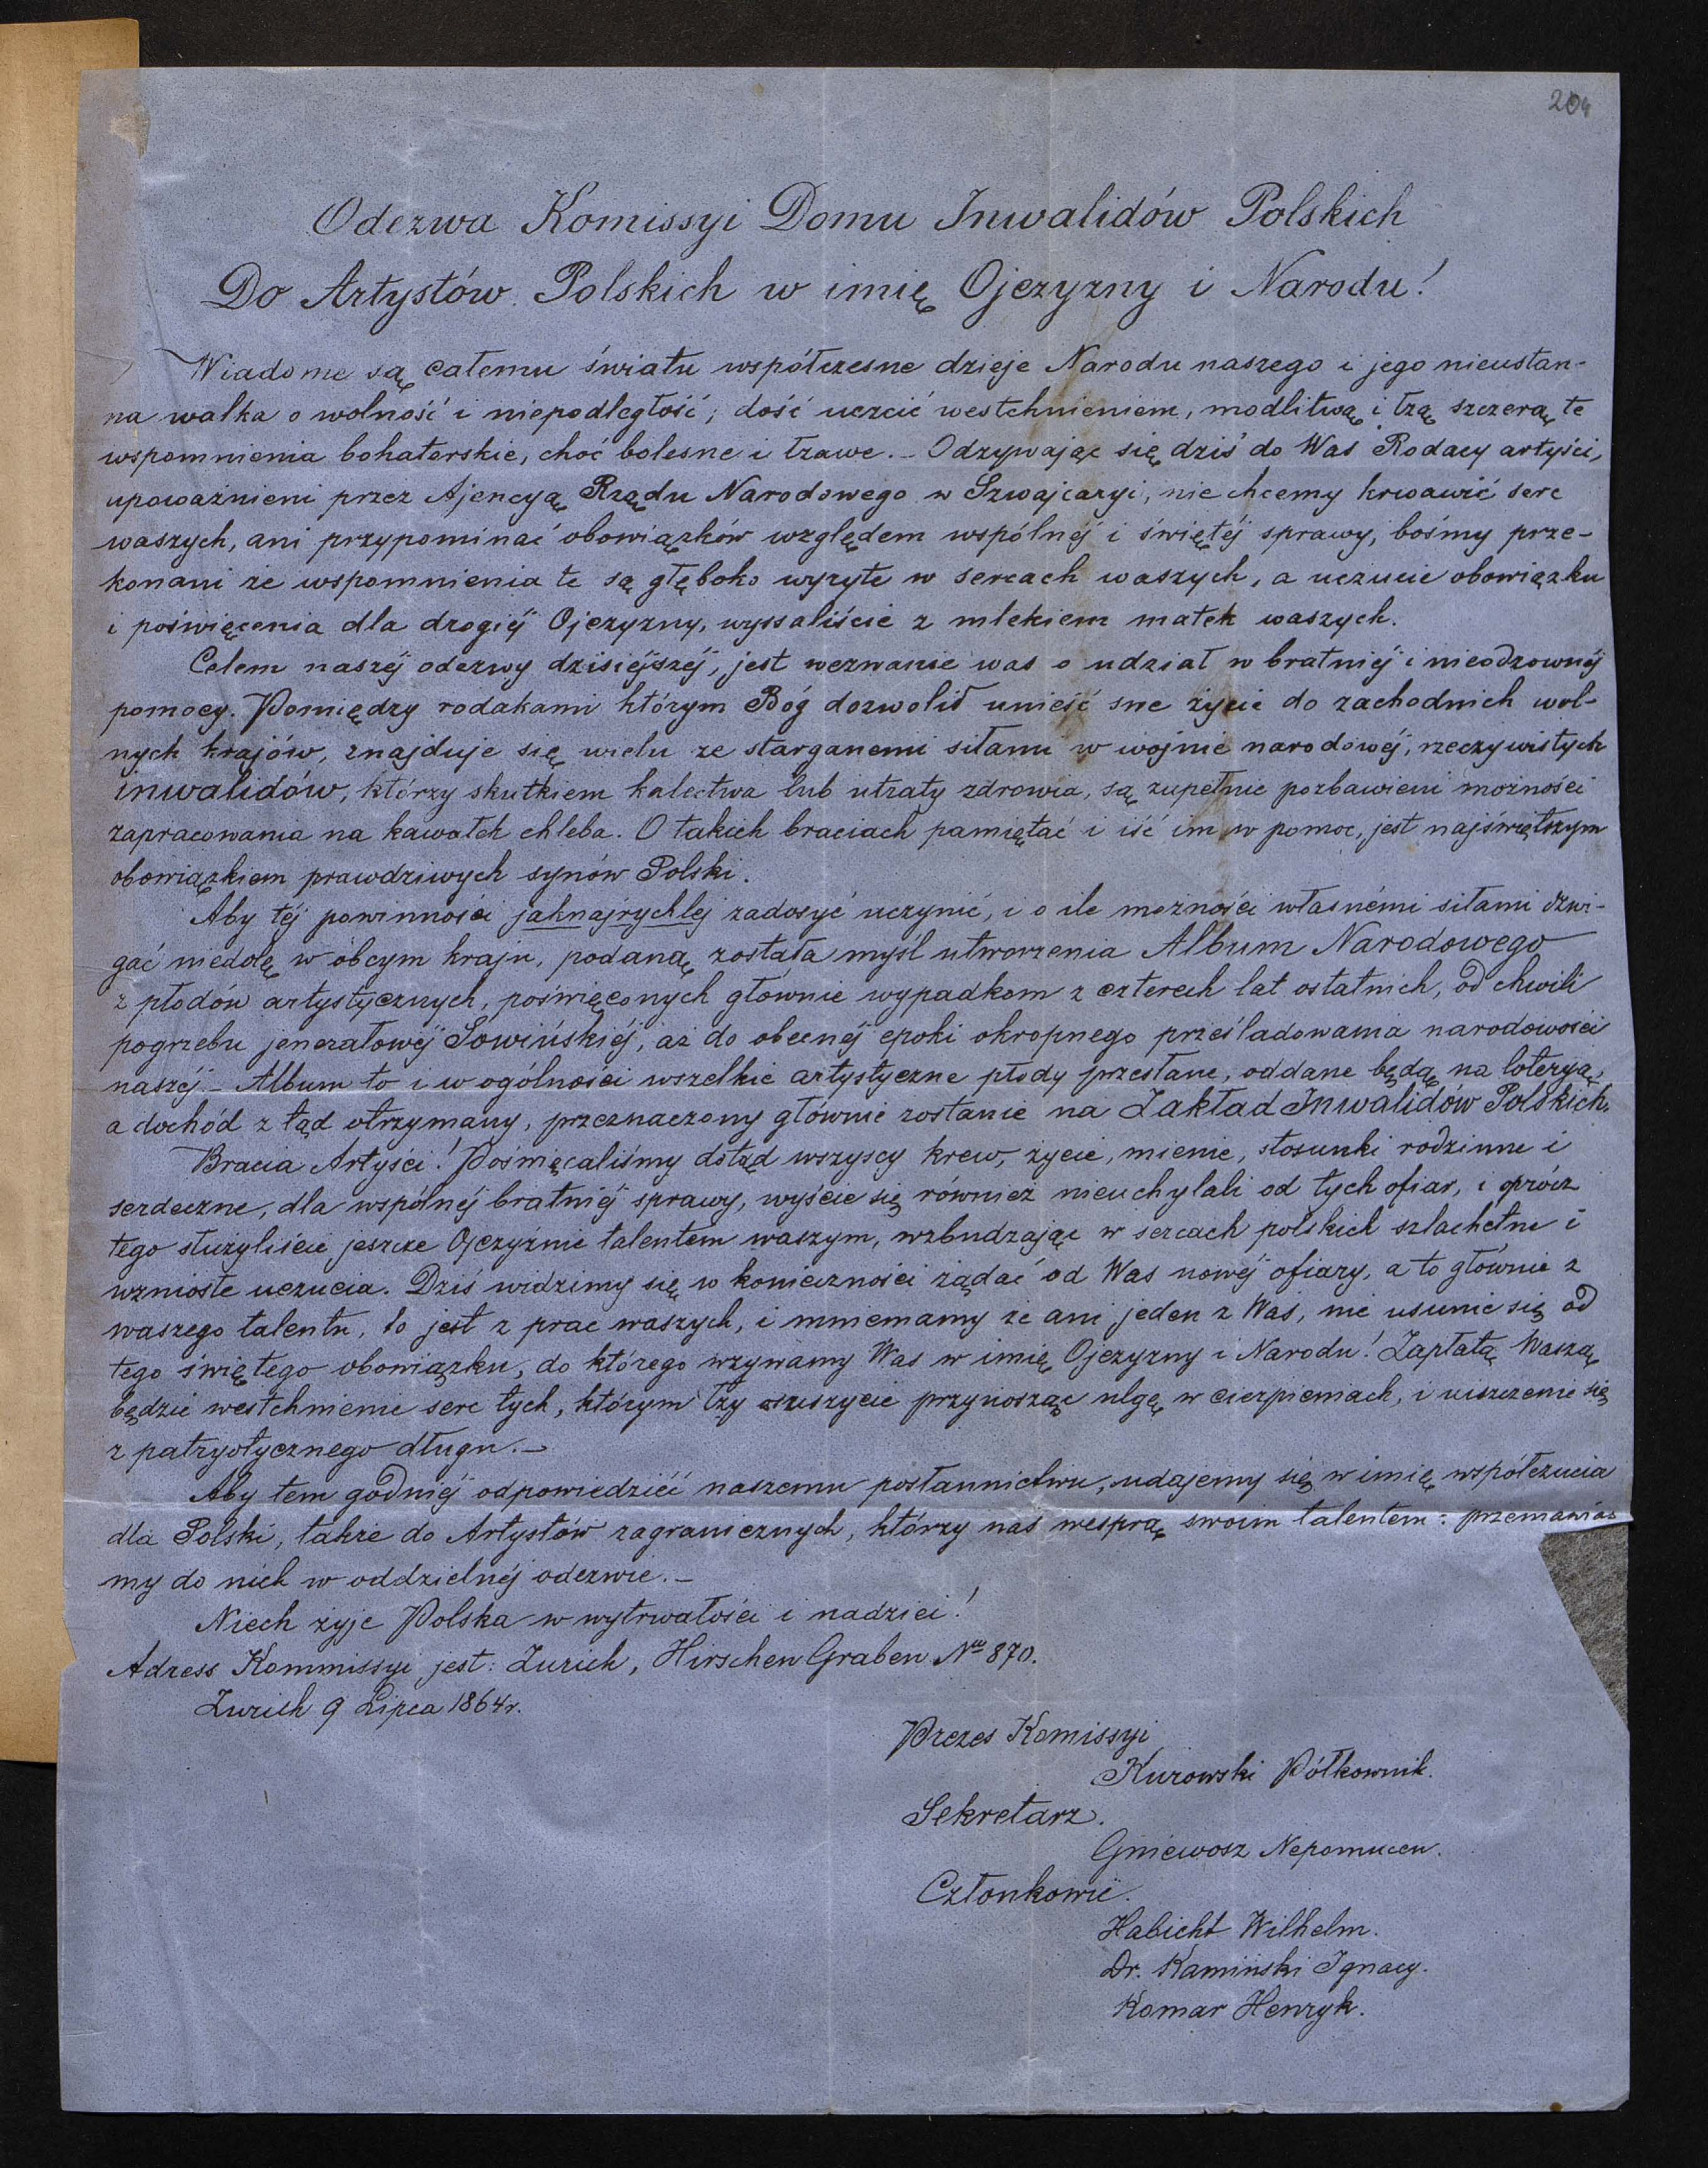 204
Odezwa Komissyi Domu Inwalidów Polskich
Do Artystów Polskich w imię Ojczyzny i Narodu!
Wiadome są całemu światu współczesne dzieje Narodu naszego i jego nieustan-
na walka o wolność i niepodległość; dość uczcić westchnieniem, modlitwą i łzą szczerą te
wspomnienia bohaterskie, choć bolesne i łzawe. – Odzywając się dziś do Was Rodacy artyści,
upoważnieni przez Ajencyą Rządu Narodowego w Szwajcaryi, nie chcemy krwawić serc
waszych, ani przypominać obowiązków względem wspólnéj i świętéj sprawy, bośmy prze-
konani że wspomnienia te są głęboko wyryte w sercach waszych, a uczucie obowiązku
i poświęcenia dla drogiéj Ojczyzny, wyssaliście z mlekiem matek waszych.
Celem naszéj odezwy dzisiéjszéj, jest wezwanie was o udział w bratniéj i nieodzownéj
pomocy. Pomiędzy rodakami którym Bóg dozwolił unieść swe życie do zachodnich wol-
nych krajów, znajduje się wielu ze starganemi siłami w wojnie narodowéj, rzeczywistych
inwalidów, którzy skutkiem kalectwa lub utraty zdrowia, są zupełnie pozbawieni możności
zapracowania na kawałek chleba. O takich braciach pamiętać i iść im w pomoc, jest najświętszym
obowiązkiem prawdziwych synów Polski.
Aby téj powinności jaknajrychlej zadosyć uczynić, i o ile możności własnémi siłami dzwi-
gać niedolę w obcym kraju, podaną została myśl utworzenia Album Narodowego
z płodów artystycznych, poświęconych głownie wypadkom z czterech lat ostatnich, od chwili
pogrzebu jenerałowéj Sowińskiéj, aż do obecnéj epoki okropnego prześladowania narodowości
naszéj. – Album to i w ogólności wszelkie artystyczne płody przesłane, oddane będą na loteryą,
a dochód z tąd otrzymany, przeznaczony głównie zostanie na Zakład Inwalidów Polskich.
Bracia Artyści! Poświęcaliśmy dotąd wszyscy krew, życie, mienie, stosunki rodzinne i
serdeczne, dla wspólnéj bratniéj sprawy, wyście się również nieuchylali od tych ofiar, i oprócz
tego służyliście jeszcze Ojczyźnie talentem waszym, wzbudzając w sercach polskich szlachetne i
wzniosłe uczucia. Dziś widzimy się w konieczności żądać od Was nowéj ofiary, a to głównie z
waszego talentu, to jest z prac waszych, i mniemamy że ani jeden z Was, nie usunie się od
tego świętego obowiązku, do którego wzywamy Was w imię Ojczyzny i Narodu! Zapłatą Waszą
będzie westchnienie serc tych, którym łzy osuszycie przynosząc ulgę w cierpieniach, i uiszczenie się
z patryotycznego długu. –
Aby tem godniéj odpowiedziéć naszemu posłannictwu, udajemy się w imię współczucia
dla Polski, także do Artystów zagranicznych, którzy nas wesprą swoim talentem: przemawia-
my do nich w oddzielnéj odezwie. –
Niech żyje Polska w wytrwałości i nadziei!
Adress Kommissyi jest: Zurich, Hirschen Graben Nro 870.
Zurich 9 Lipca 1864 r.
Prezes Komissyi
Kurowski Półkownik.
Sekretarz.
Gniewosz Nepomucen.
Członkowie.
Habicht Wilhelm.
Dr. Kamiński Ignacy.
Komar Henryk.